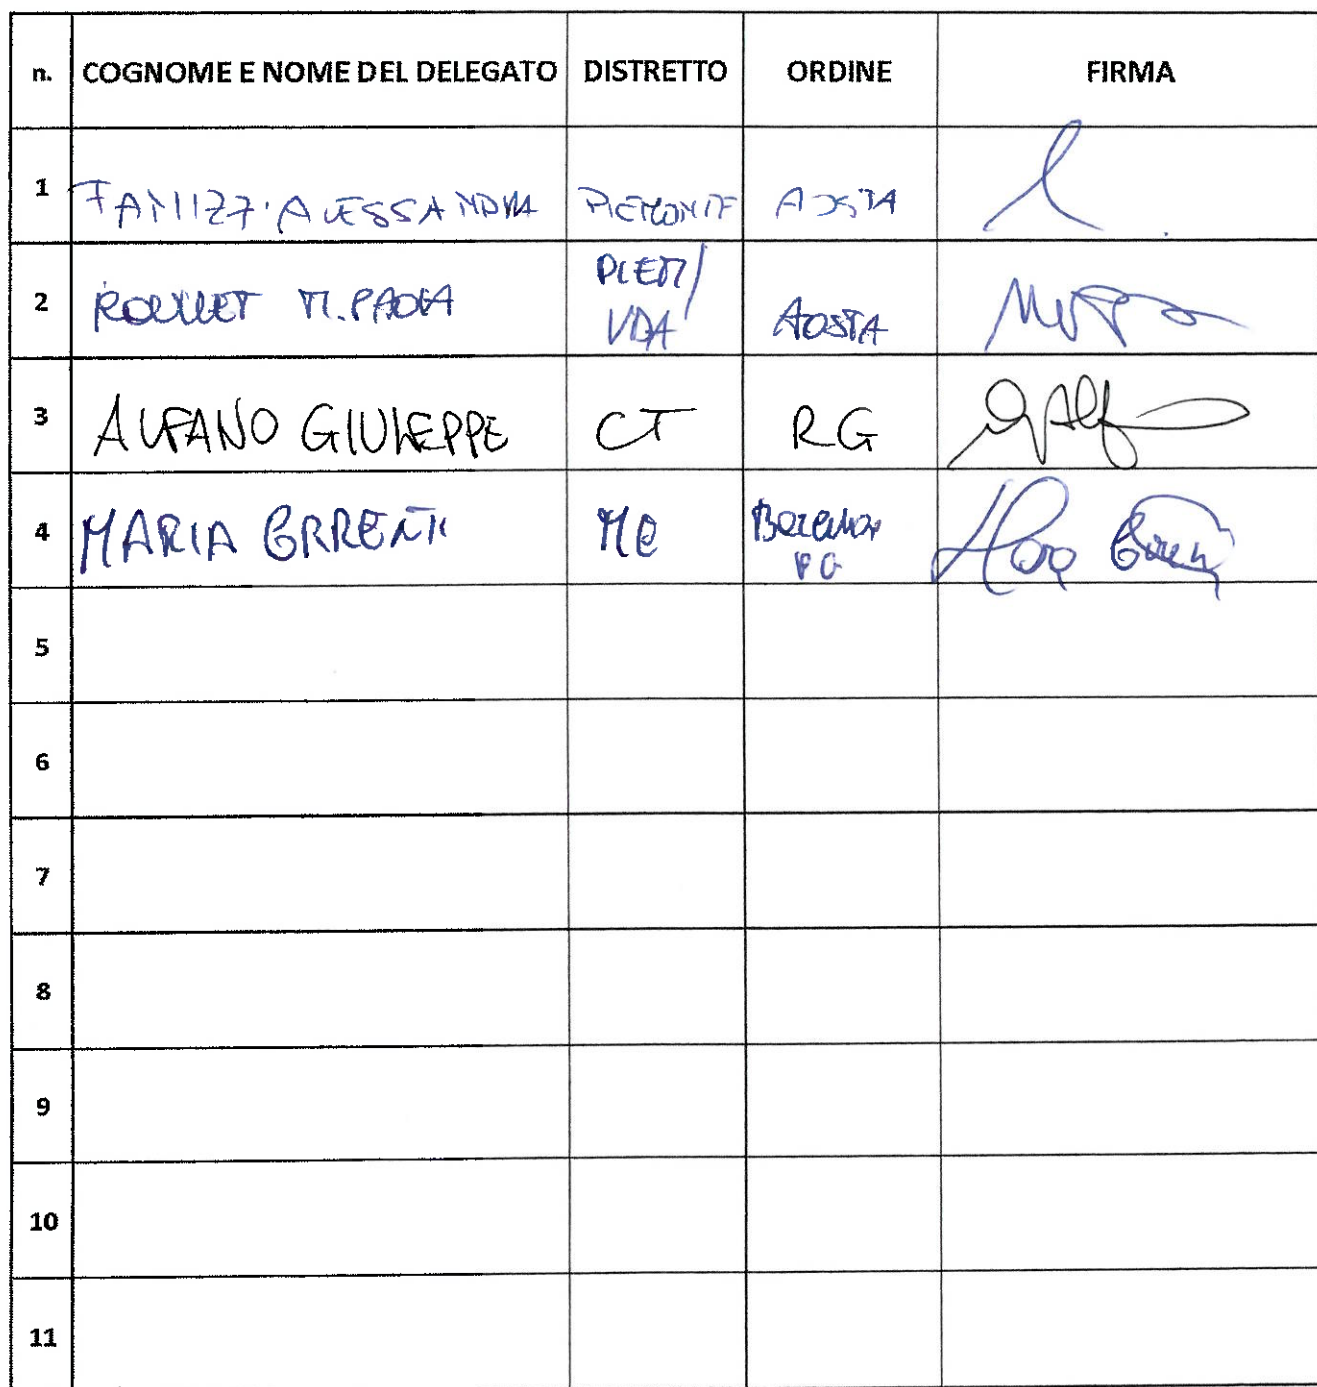 n. COGNOME E NOME DEL DELEGATO DISTRETTO ORDINE FIRMA
1 FANIZZI ALESSANDRA PIEMONTE AOSTA
2 ROULLET M. PAOLA PIEM/ VDA AOSTA
3 ALFANO GIUSEPPE CT RG
4 MARIA ERRENTI ME
5
6
7
8
9
10
11